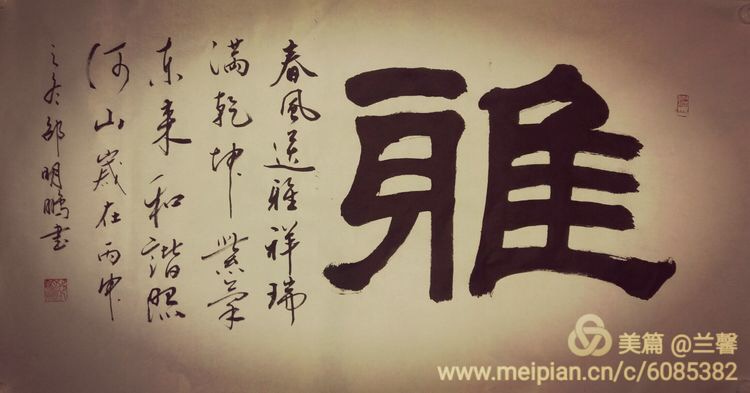 雅
春风送雅祥瑞
满乾坤紫气
东来和谐照
河山岁在丙申
之冬邵明鹏书
美篇 @兰馨
www.meipian.cn/c/6085382